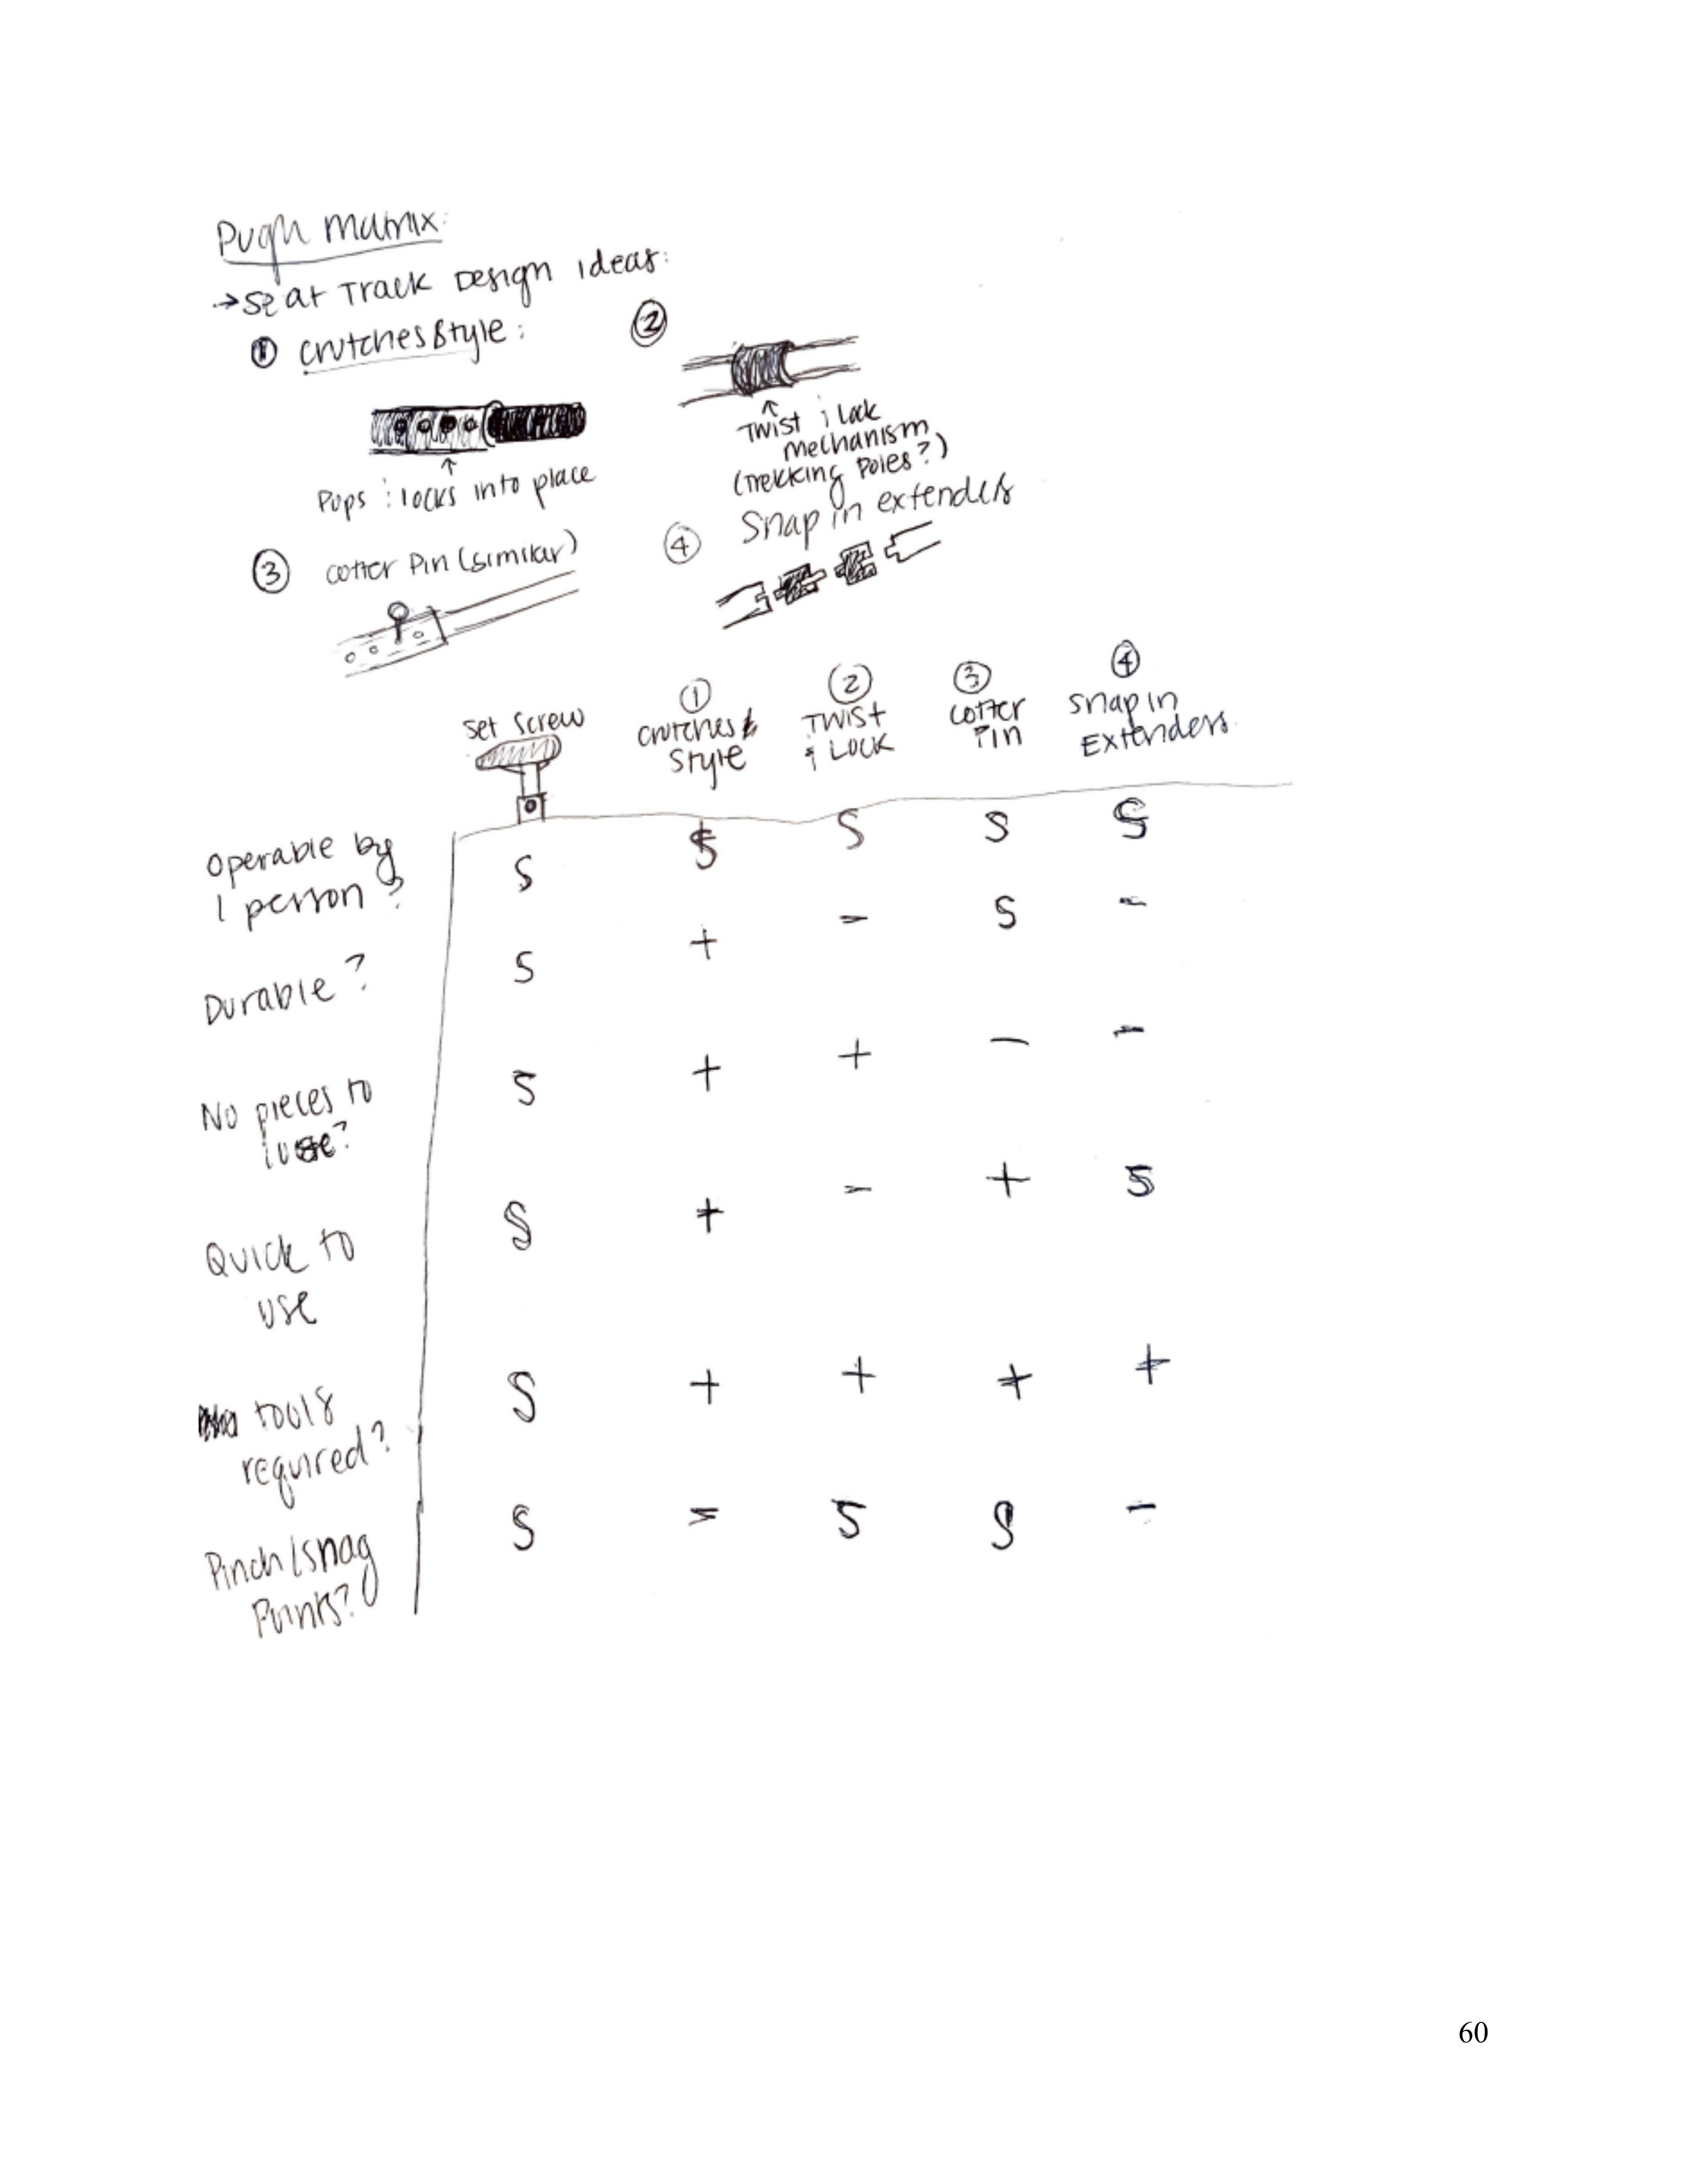 Pugh Matrix:
→ Seat Track Design Ideas:
① Crutches Style:
②
Pops & locks into place
Twist & Lock
Mechanism
(Trekking Poles?)
③ Cotter Pin (similar)
④ Snap in extenders
Set Screw
① Crutches Style
② Twist & Lock
③ Cotter Pin
④ Snap in Extenders
Operable by
1 person? S S S S S
Durable? S + - S -
No pieces to
lose? S + + - -
Quick to
use S + - + S
tools
required? S + + + +
Pinch/snag
Points? S - S S -
60